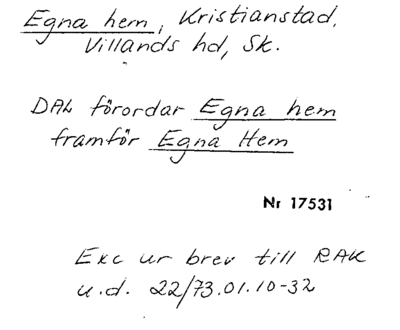 Egna hem, Kristianstad,
Villands hd, Sk.
DAL förordar Egna hem
framför Egna Hem
Nr 17531
Exc ur brev till RAK
u.d. 22/73.01.10-32